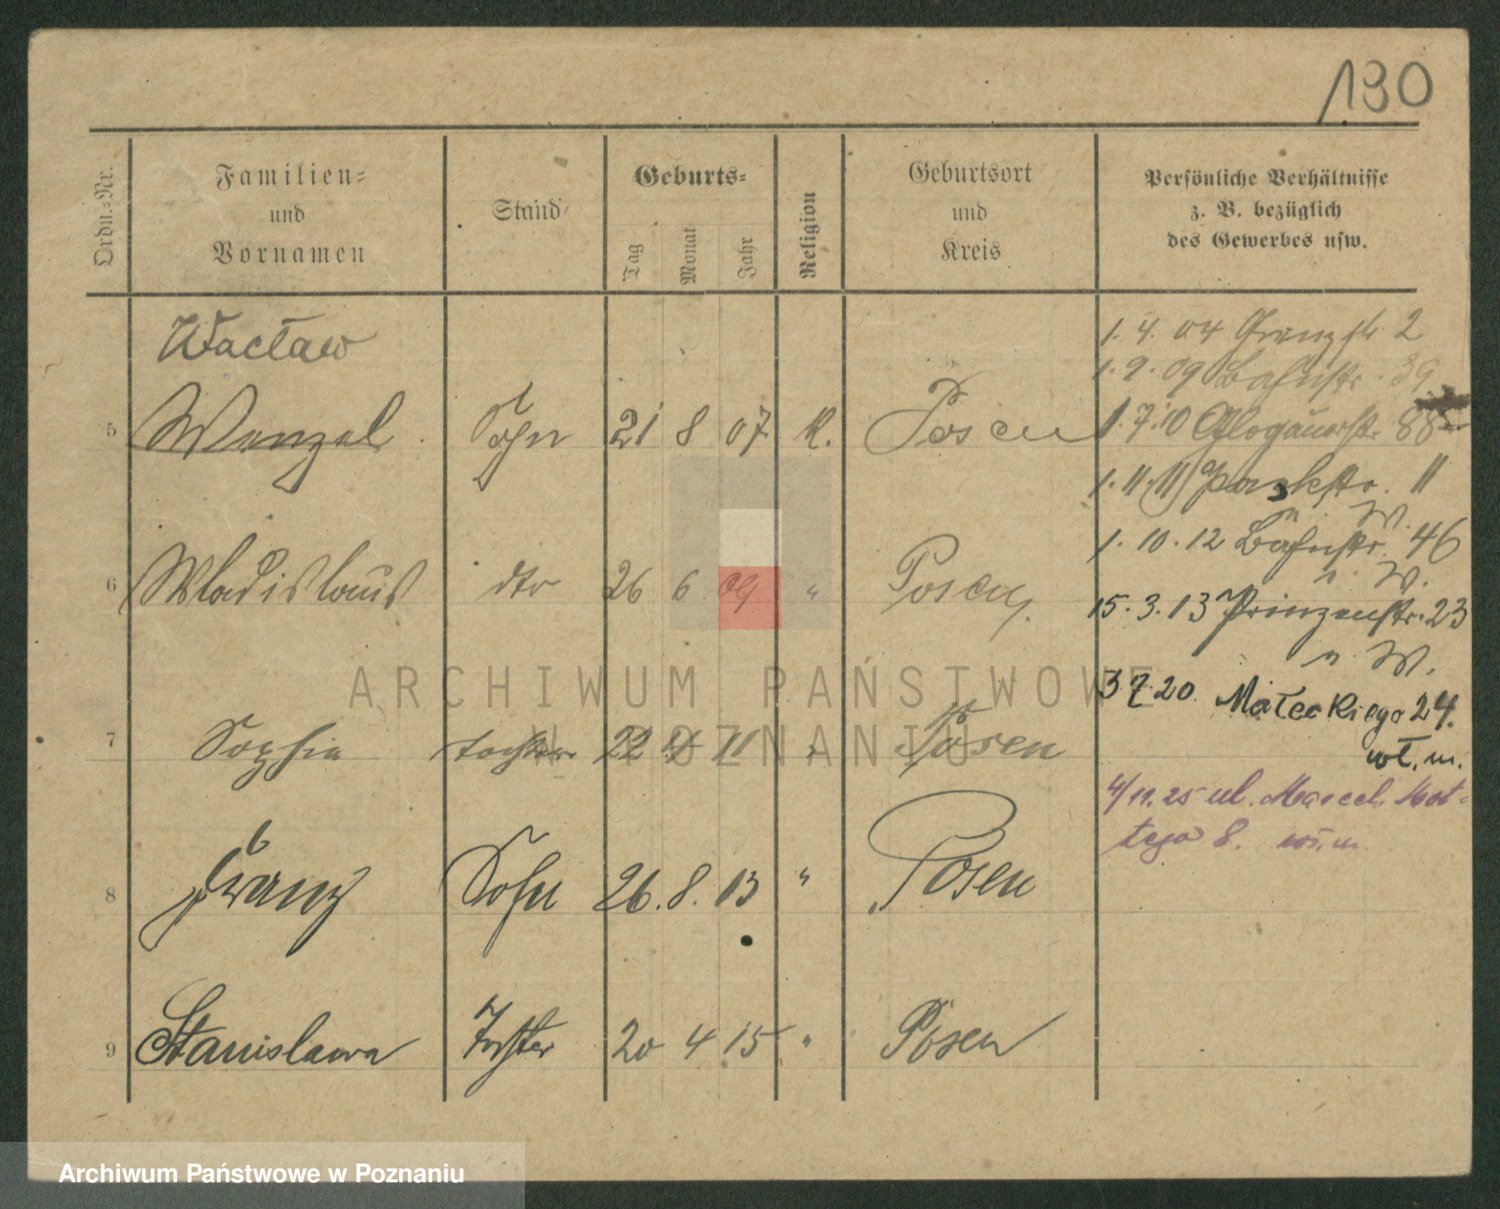 130
Ordn.-Nr.
Familien-
und
Vornamen
Stand
Geburts-
Tag
Monat
Jahr
Religion
Geburtsort
und
Kreis
Persönliche Verhältnisse
z. B. bezüglich
des Gewerbes usw.
Wacław
5 Wenzel Sohn 21 8 07 K. Posen
6 Wladislaus dto 26 6 09 " Posen
7 Sophie Tochter 22 4 11 " Posen
8 Franz Sohn 26. 8. 13 " Posen
9 Stanislawa Tochter 20 4 15 " Posen
1. 4. 04 2
1. 9. 09 Bahnstr. 39
1. 7. 10 Glogauerstr. 88
1. 11. 11 Parkstr. 11
n. W.
1. 10. 12 Bahnstr. 46
n. W.
15. 3. 13 Prinzenstr. 23
n. W.
3 7 20. Małeckiego 24.
wł. m.
4/11. 25 ul. Marcel. Mot-
tego 8. wł. m
ARCHIWUM PAŃSTWOWE
W POZNANIU
Archiwum Państwowe w Poznaniu